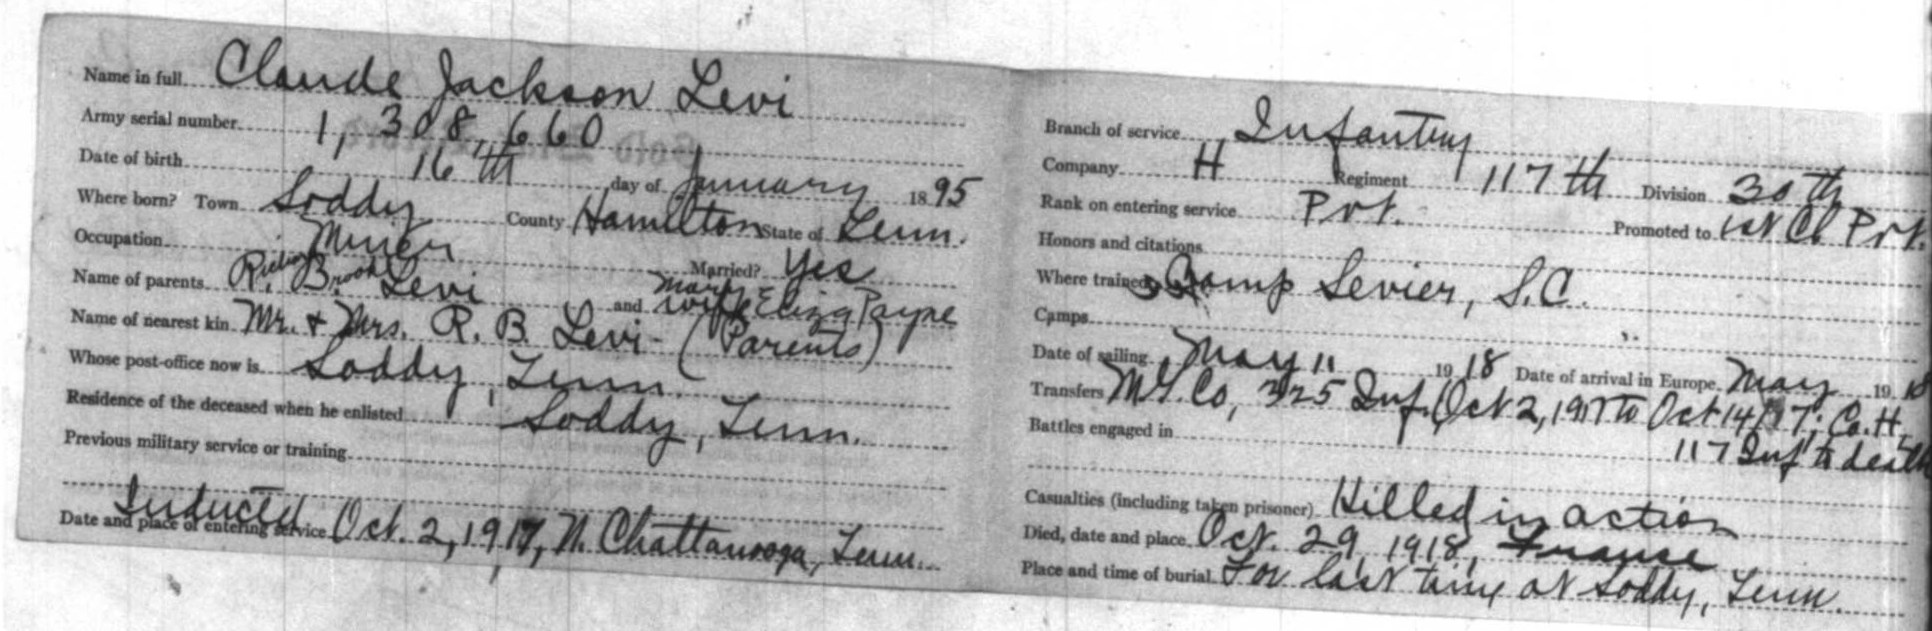 Name in full Claude Jackson Levi
Army serial number 1,308,660
Date of birth 16th day of January 1895
Where born? Town Soddy County Hamilton State of Tenn.
Occupation Miner Married? Yes
Name of parents R. Brook Levi and Mary Eliza Payne
Name of nearest kin Mr. & Mrs. R. B. Levi - (Parents)
Whose post-office now is Soddy, Tenn.
Residence of the deceased when he enlisted Soddy, Tenn.
Previous military service or training
Inducted
Date and place of entering service Oct. 2, 1917, N. Chattanooga, Tenn.
Branch of service Infantry
Company H Regiment 117th Division 30th
Rank on entering service Pvt. Promoted to 1st Cl Pvt
Honors and citations
Where trained Camp Sevier, S.C.
Camps
Date of sailing May 11 1918 Date of arrival in Europe May 19
Transfers Co, 325 Inf. (Oct 2, 1917 to Oct 14/17; Co. H,
117 Inf to death
Battles engaged in
Casualties (including taken prisoner) Killed in action
Died, date and place Oct. 29, 1918, France
Place and time of burial For last time at Soddy, Tenn.